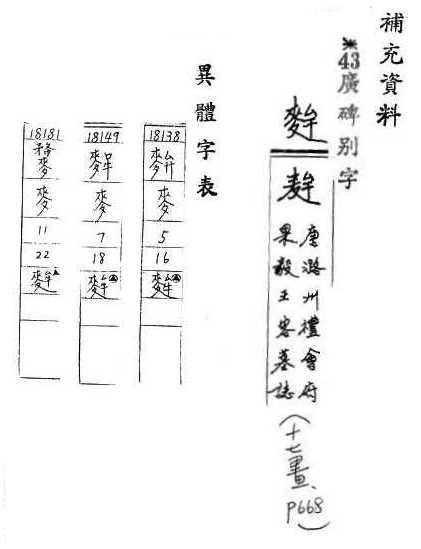 補充資料
※43廣碑别字
麰
唐潞州禮會府
果毅王客墓誌
(十七畫、P668)
異體字表
18138
麥
5
16
麰
18149
麥
7
18
麰
18181
麥
11
22
麰